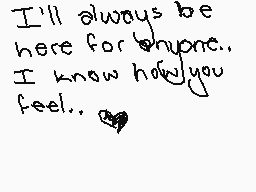 I'll always be
here for anyone..
I know how you
feel..